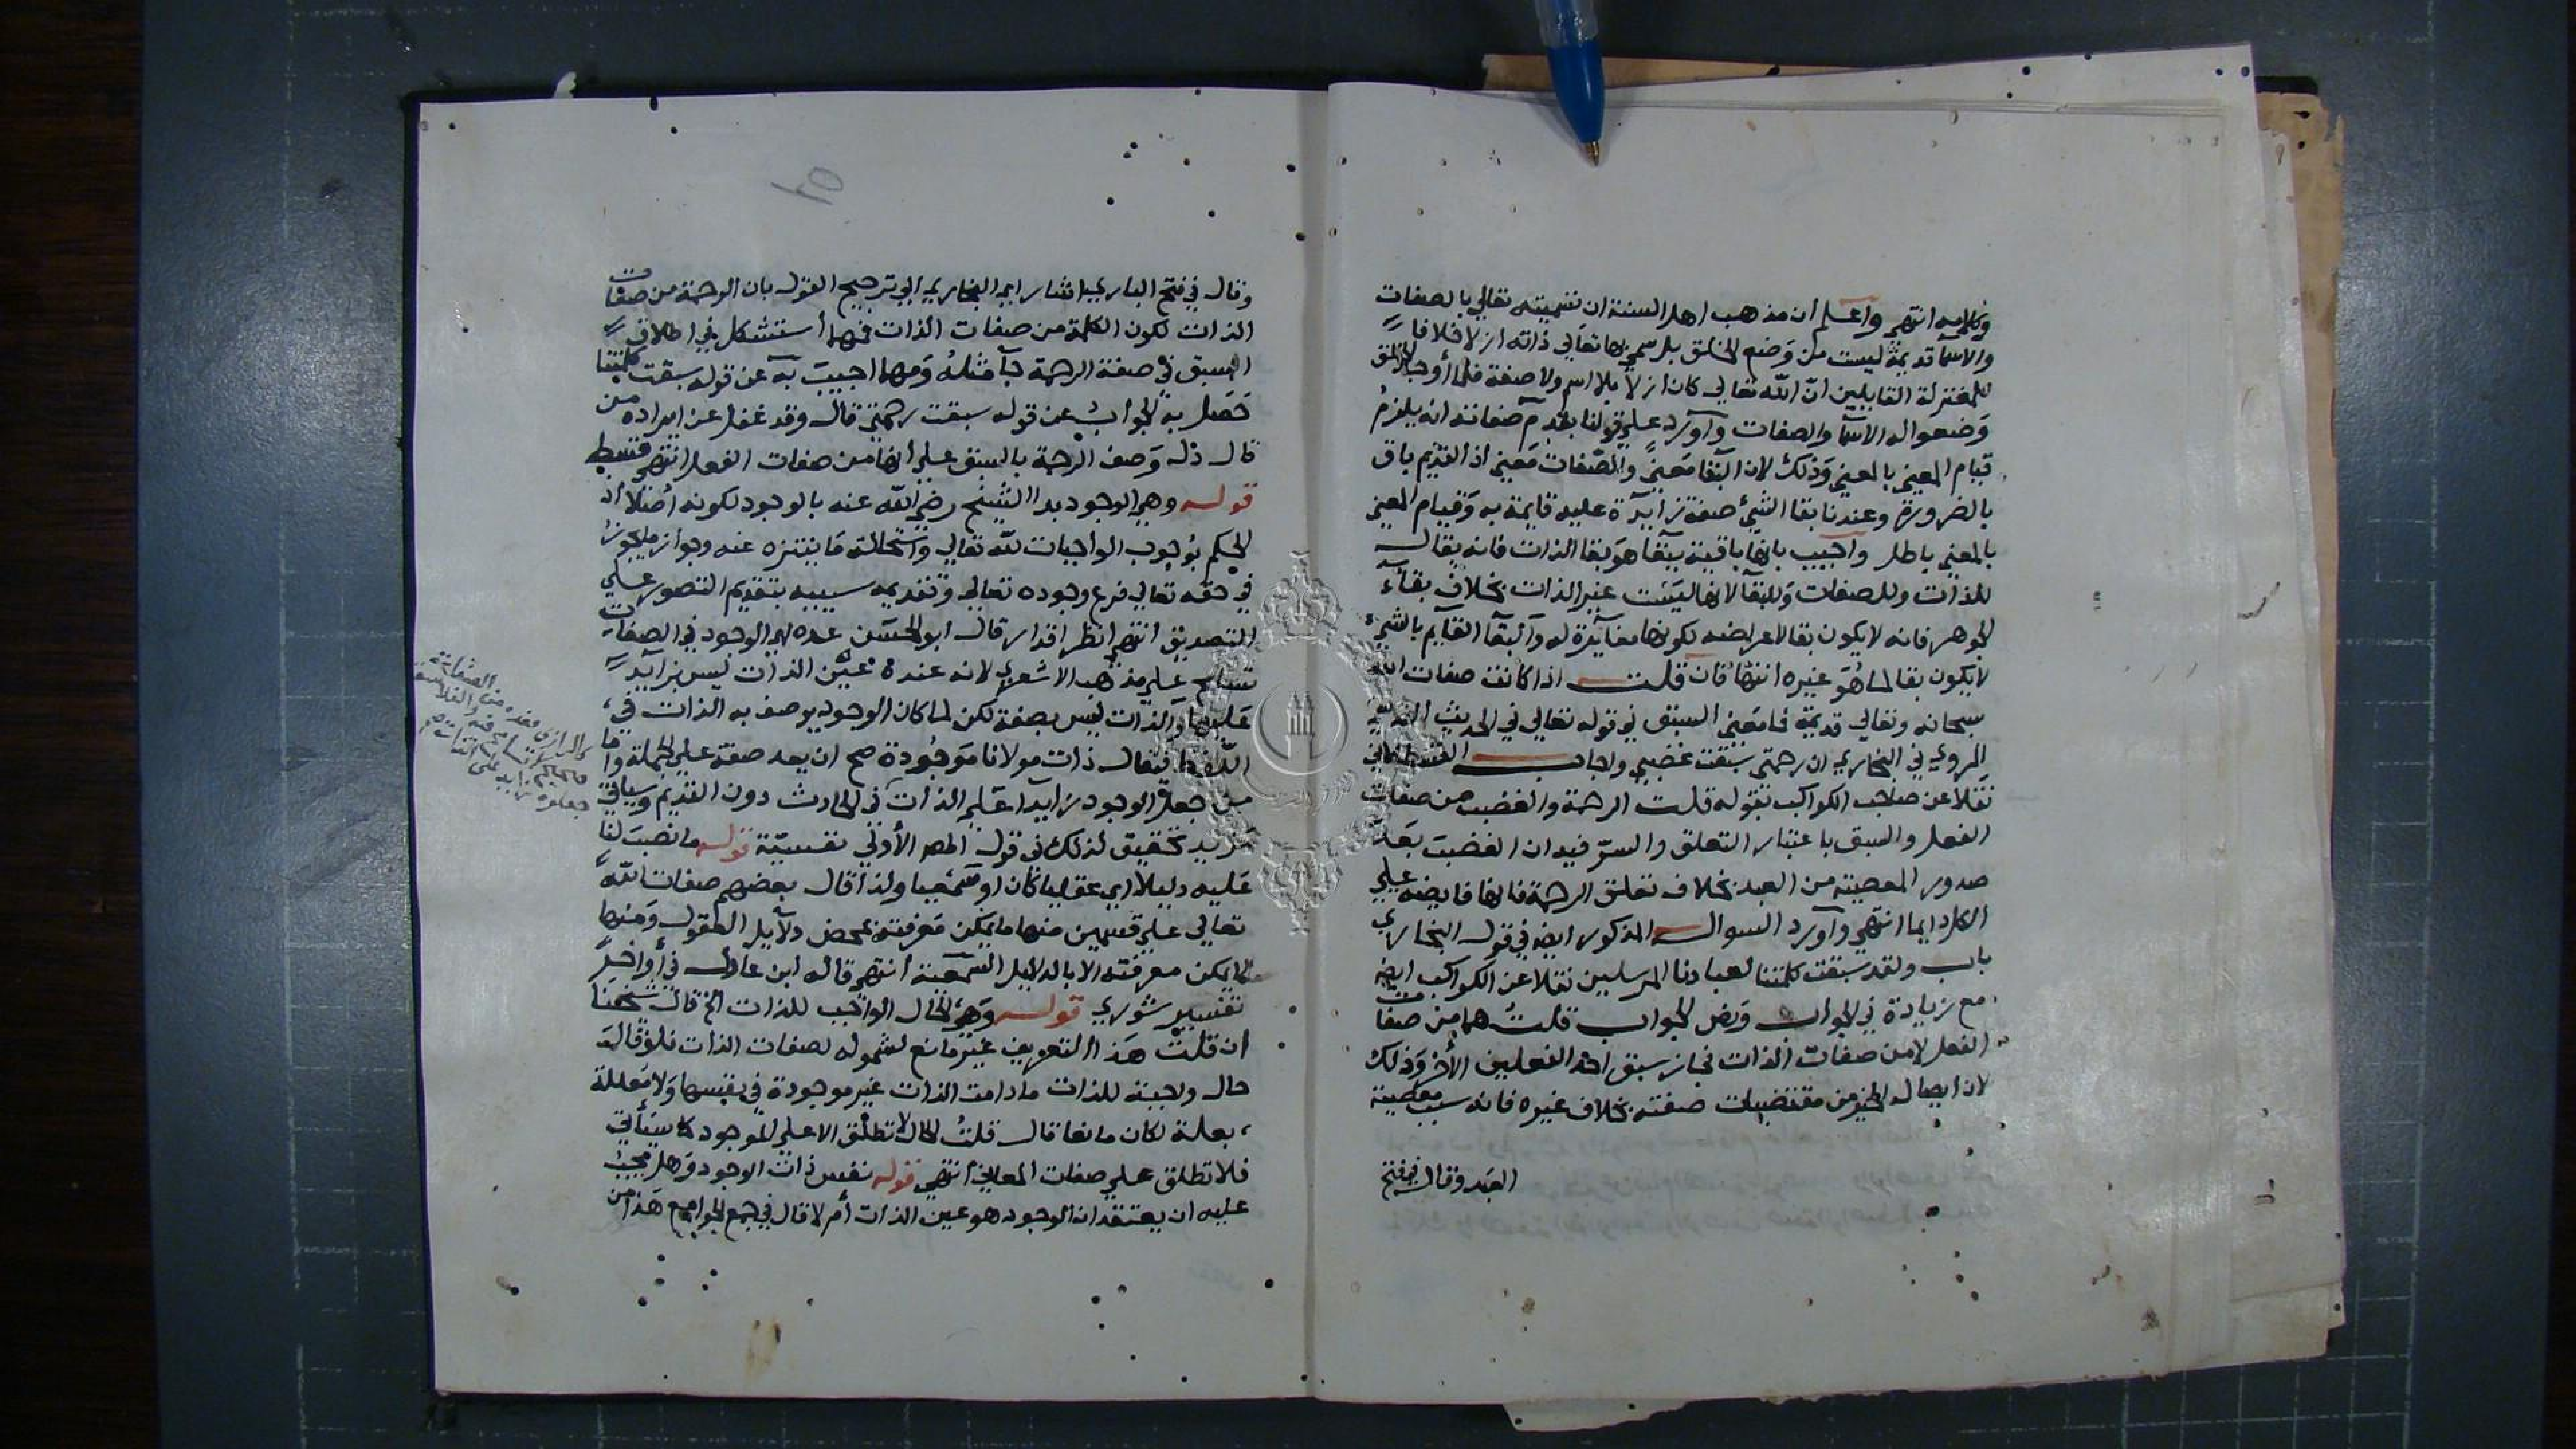 وكلامه انتهي واعلم أن مذهب اهل السنة ان تسميته تعالي بالصفات
والاسما قديمة ليست من وضع الخلق بل سمي بها تعالي ذاته ازلا خلافا
للمعتزلة القايلين انّ الله تعالي كان ازلا بلا اسم ولا صفة فلما أوجد الخلق
وَضعوا له الاسما والصفات وآورد علي قولنا بقدم صفاته انه يلزم
قيام المعني بالمعني وَذلك لان البقا مَعنيً والصّفات مَعني اذ القديم باق
بالضرورة وعندنا بقا الشيئ صفة زايدة عليه قايمة به وَقيام المعني
بالمعني باطل واجيب بانها باقية ببقا هوَ بقا الذات فانه بقا له
للذات وللصفات وَللبقا لانها ليسَت غير الذات بخلاف بقآء
الجوهر فانه لا يكون بقا لاعراضه لكونها مغايرة له وآلبقا القايم بالشيئ
لا يكون بقا لما هُوَ غيره انتها فان قلت اذا كانت صفات الله
سبحانه وتعالي قديمة فما مَعني السبق في قوله تعالي في الحديث القدسي
المروي في البخاري ان رحمتي سبقت غضبي واجاب القسطلاني
نقلا عن صاحب الكواكب بقوله قلت الرحمة والغضب من صفات
الفعل والسبق باعتبار التعلق والسرّ فيه ان الغضبَ بَعد
صدور المعصية من العبد بخلاف تعلق الرحمة فانها فايضة علي
الكل دايما انتهي وآورد السوال المذكور ايضه في قول البخاري
باب ولقد سبقت كلمتنا لعبادنا المرسلين نقلا عن الكواكب ايضه
مع زيادة في الجواب وَنص الجواب قلتُ هما من صفات
الفعل لا من صفات الذات فجاز سبق احد الفعلين الآخر وَذلك
لان ايصال الخير من مقتضيات صفته بخلاف غيره فانه سبب معصية
العبد وقال في فتح
وقال في فتح الباري اشار اي البخاري الي ترجيح القول بان الرحمة من صفات
الذات لكون الكلمة من صفات الذات فمهما أستشكل في اطلاق
السبق في صفة الرحمة جآ مثلهُ وَمهما اجيبَ به عن قوله سبقت كلمتنا
حَصَل به الجوابُ عن قوله سبقت رحمتي قال وقد غفل عن مراده من
قال دل وَصف الرحمة بالسبق علي أنها من صفات الفعل انتهي قسط
قوله وهي الوجود بدا الشيخ رضي الله عنه بالوجود لكونه أصلا اذ
الحكم بوُجوب الواجبات لله تعالي واستحالة مَا يتنزه عنه وجواز ما يجوز
في حقه تعالي فرع وجوده تعالي وتقديمه سببه بتقديم التصور علي
التصديق انتهي انظر اقدار قال ابو الحسَن عده اي الوجود في الصفات
تسامح علي مذهب الاشعري لانه عنده عَين الذات ليسَ بزايد
عَليها وَالذات ليس بصفة لكن لما كان الوجود يوصف به الذات في
اللفظ فيقال ذات مولانا مَوجُودة صح ان يعد صفة علي الجملة واما
من جعل الوجود زايدا علي الذات في الحادث دون القديم وسياتي
مزيد تحقيق لذلك في قول المص الأولي نفسيّة قوله ما نصبَ لنا
عَليه دليلا اي عقليا كان او سَمعيا ولذا قال بعضهم صفات الله
تعالي علي قسمين منها ما يمكن مَعرفته بمحض دلآيل العقول وَمنها
ما لا يمكن معرفته الا بالدلايل السّمعية أنتهي قاله ابن عادل في أواخر
تفسير شوري قوله وَهيَ الحال الواجب للذات الخ قال شيخنا
ان قلت هَذا التعريف غير مانع لشموله لصفات الذات فلو قال
حال واجبة للذات ما دامت الذات غير موجودة في نفسها وَلا مَعللة
بعلة لكان مانعا قال قلتُ الحال لا تطلق الا علي للموجود كما سَيأتي
فلا تطلق علي صفات المعاني انتهي قوله نفس ذات الوجود وَهل يجبُ
عليه ان يعتقد ان الوجود هو عين الذات أم لا قال في جمع الجوامع هَذا من